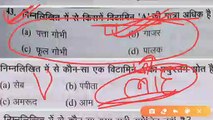 निम्नलिखित में से किसमें विटामिन 'A' की मात्रा अधिक है
(a) पत्ता गोभी (b) गाजर
(c) फूल गोभी (d) पालक
निम्नलिखित में से कौन-सा एक विटामिन स्रोत है
(a) सेब (b) पपीता
(c) अमरूद (d) आम